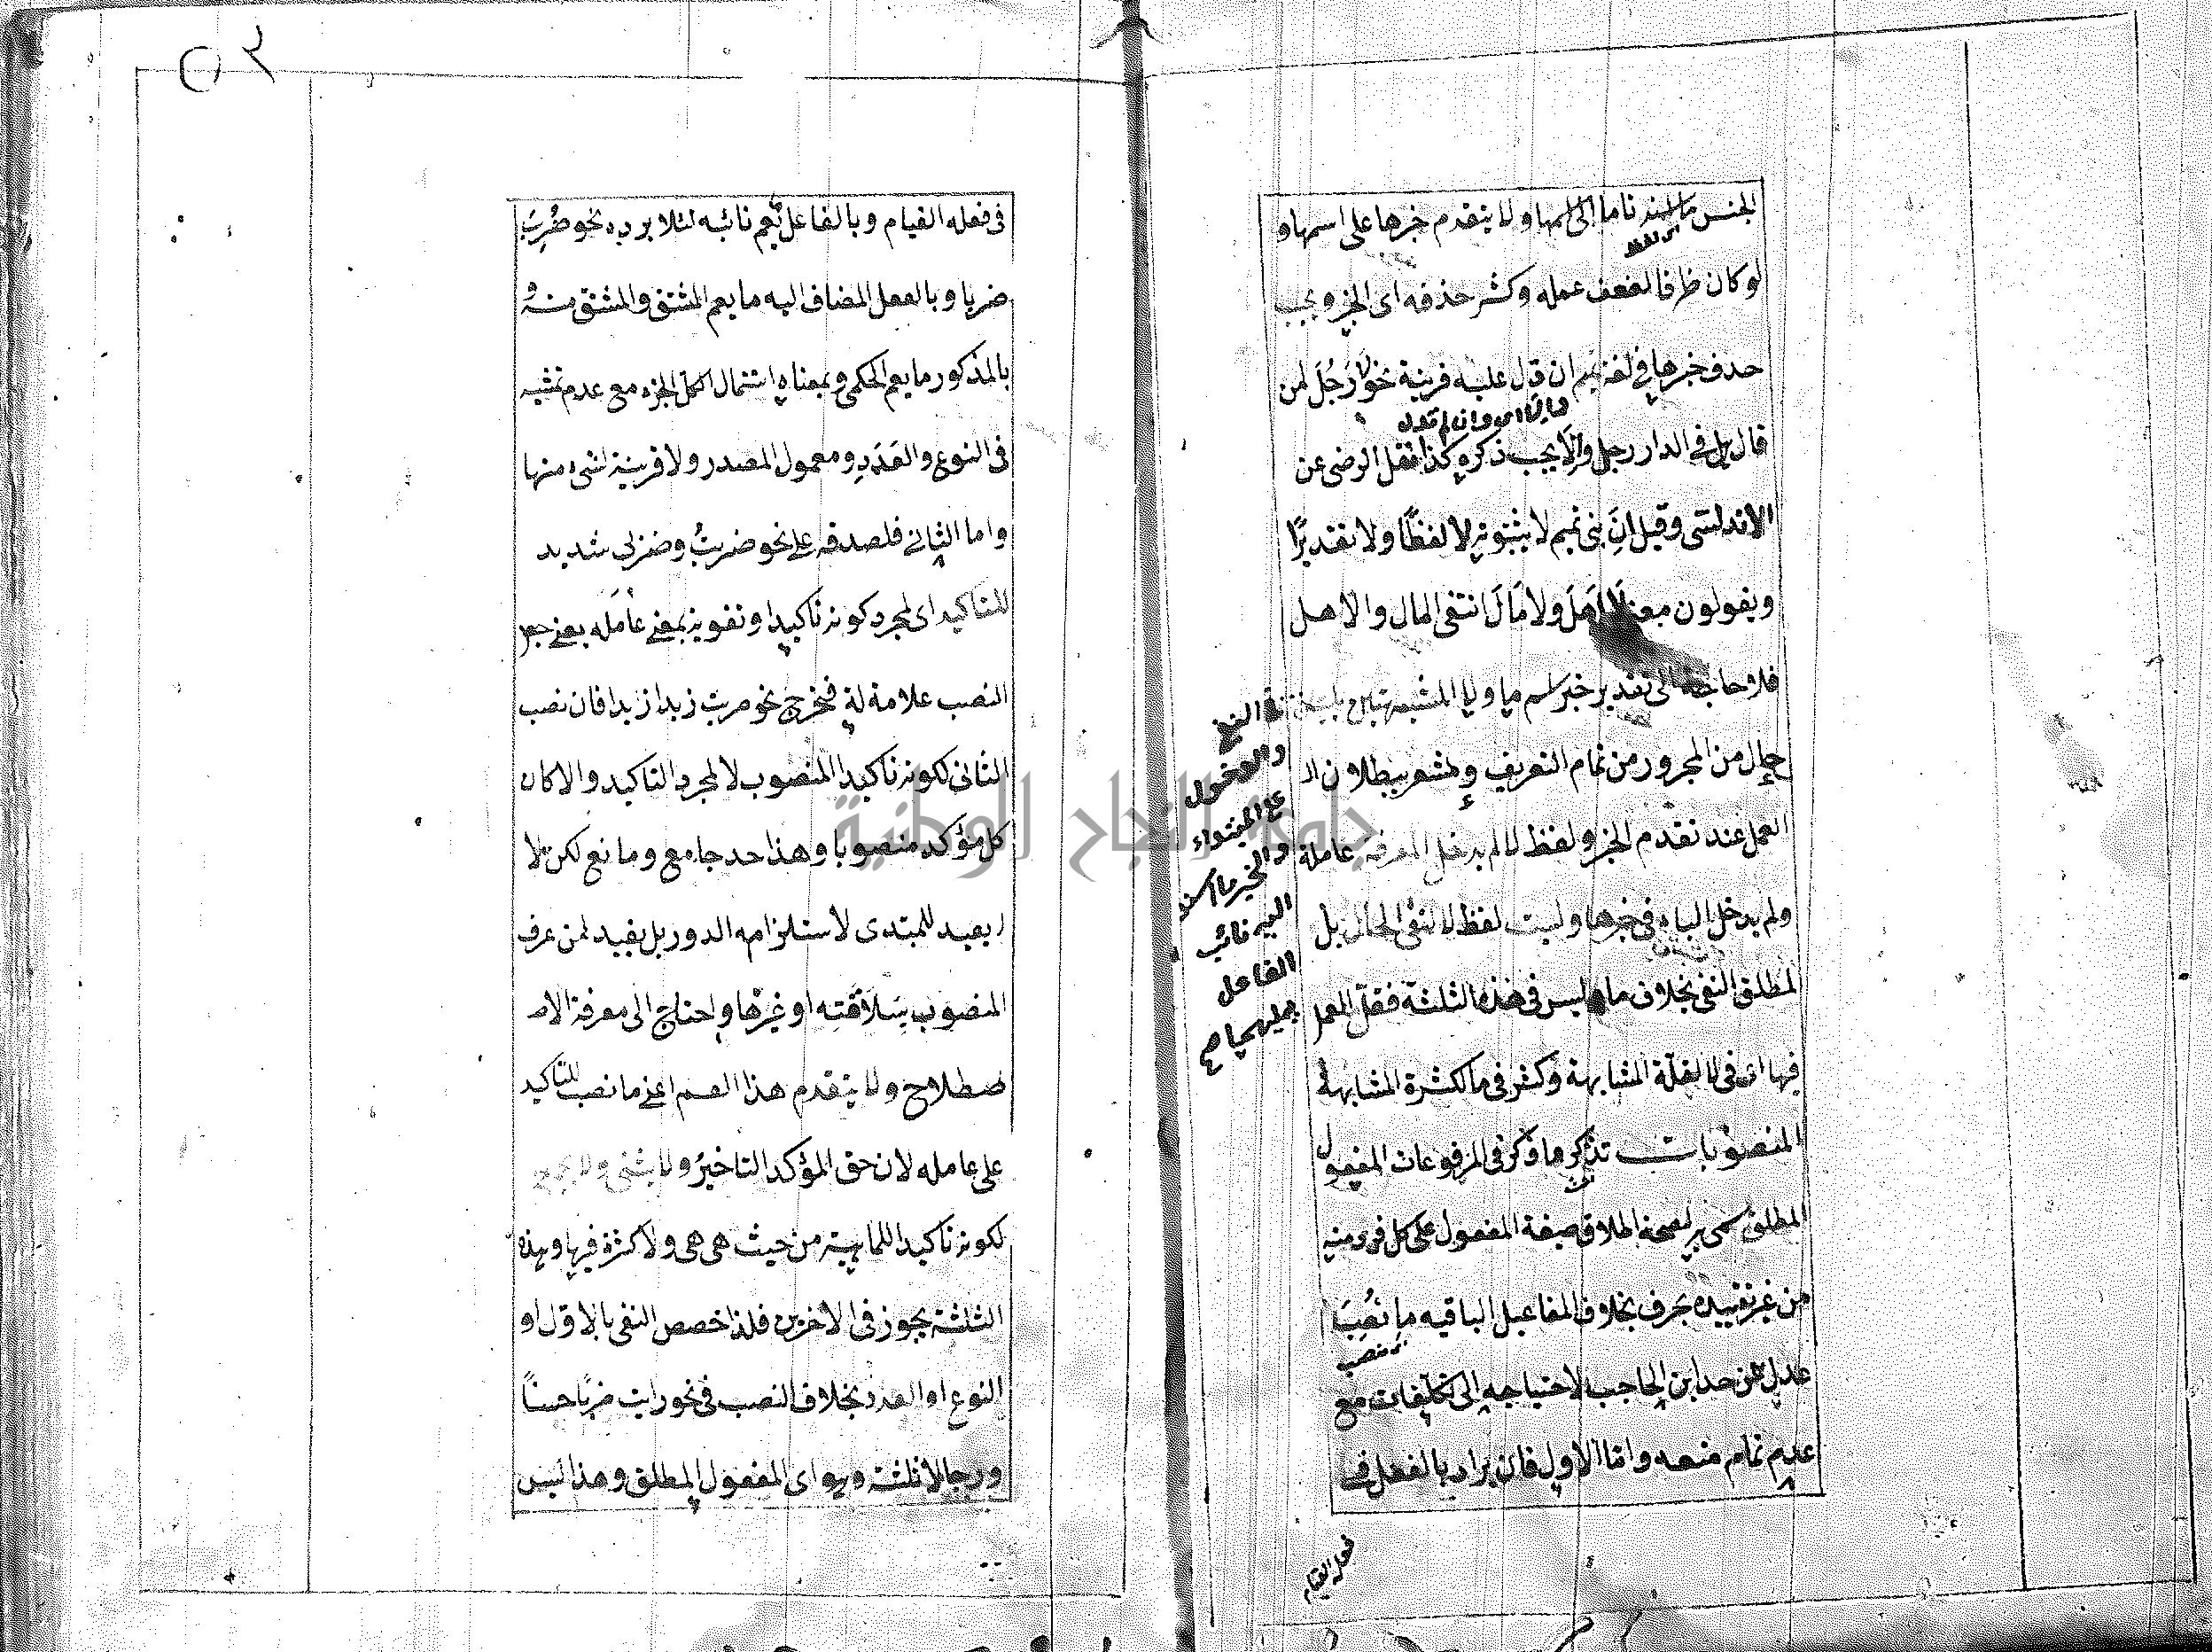 الجنس ما اليه ناما اى اسمها ولا يتقدم خبرها على اسمها و
اى لفظ
لو كان ظرفا لضعف عمله وكثر حذفه اى الخبر ويجب
حذف خبرها فى لغة تميم ان قال عليه قرينة نحو لا رَجُلَ لمن
قال هل فى الدار رجل والا يجب ذكره كذا نقل الرضى عن
الاندلسى وقيل ان بنى تميم لا يثبتونه لا لفظًا ولا تقديرًا
ويقولون معنى لا اهلَ ولا مَالَ انتفى المال والاهل
فلا حاجة الى تقدير خبر اسم ما ولا المشبهتين بليس
حال من المجرور من تمام التعريف ومشعر ببطلان ال
العمل عند تقدم الخبر ولفظ لا لم يدخل المعرفة عاملة
ولم يدخل الباء فى خبرها وليست لفظ لا لنفى الحال بل
لمطلق النفى بخلاف ما وليس فى هذه الثلثة فقلّ العمل
فيها اى فى لا لقلة المشابهة وكثر فى ما لكثرة المشابهة
المنصوبات تذكر ما ذكر فى المرفوعات المفعول
المطلق سمى به لصحة اطلاق صيغة المفعول على كل فرد منه
من غير تقييده بحرف بخلاف المفاعيل الباقيه ما نُصِبَ
عدل عن حد ابن الحاجب لاحتياجه الى تكلفات مع
عدم تمام منعه واما الاول فان يراد بالفعل فى
فى النسخ
والمفعول
على المبتداء
والخبر ما اسند
اليه نائب
الفاعل
فعله القيام
٥٢
فى فعله القيام وبالفاعل يعم نائبه لئلا يرد نحو ضُرِبَ
ضربا وبالفعل المضاف اليه ما يعم المشتق والمشتق منه و
بالمذكور ما يعم الحكمى وبمعناه اشتمال الكل الجزء مع عدم تمشيه
فى النوع والعَدَدِ ومعمول المصدر ولا قرينة لشىء منها
واما الثانى فلصدقه على نحو ضربتُ وضربى شديد
للتاكيد اى لمجرد كونه تاكيدا وتقوية بمعنى عامله يعنى جعل
النصب علامة له فخرج نحو ضربت زيدا زيدا فان نصب
الثانى لكونه تاكيدا لمنصوب لا لمجرد التاكيد والا كان
كل مؤكد منصوبا وهذا حد جامع ومانع لكن لا
يفيد للمبتدى لاستلزامه الدور بل يفيد لمن عرف
المنصوب بِسَلاَقَتِه او غيرها واحتاج الى معرفة الا
صطلاح ولا يتقدم هذا القسم اعنى ما نصب للتاكيد
على عامله لان حق المؤكد التاخير ولا يثنى ولا يجمع
لكونه تاكيدا للماهية من حيث هى هى ولا كثرة فيها وهذه
الثلثة يجوز فى الاخرين فلذا خصص النفى بالاول او
النوع او العدد بخلاف النصب فى نحو رايت ضربًا حسنًا
ورجالا ثلثة وهو اى المفعول المطلق وهذا ليس
جامعة النجاح الوطنية